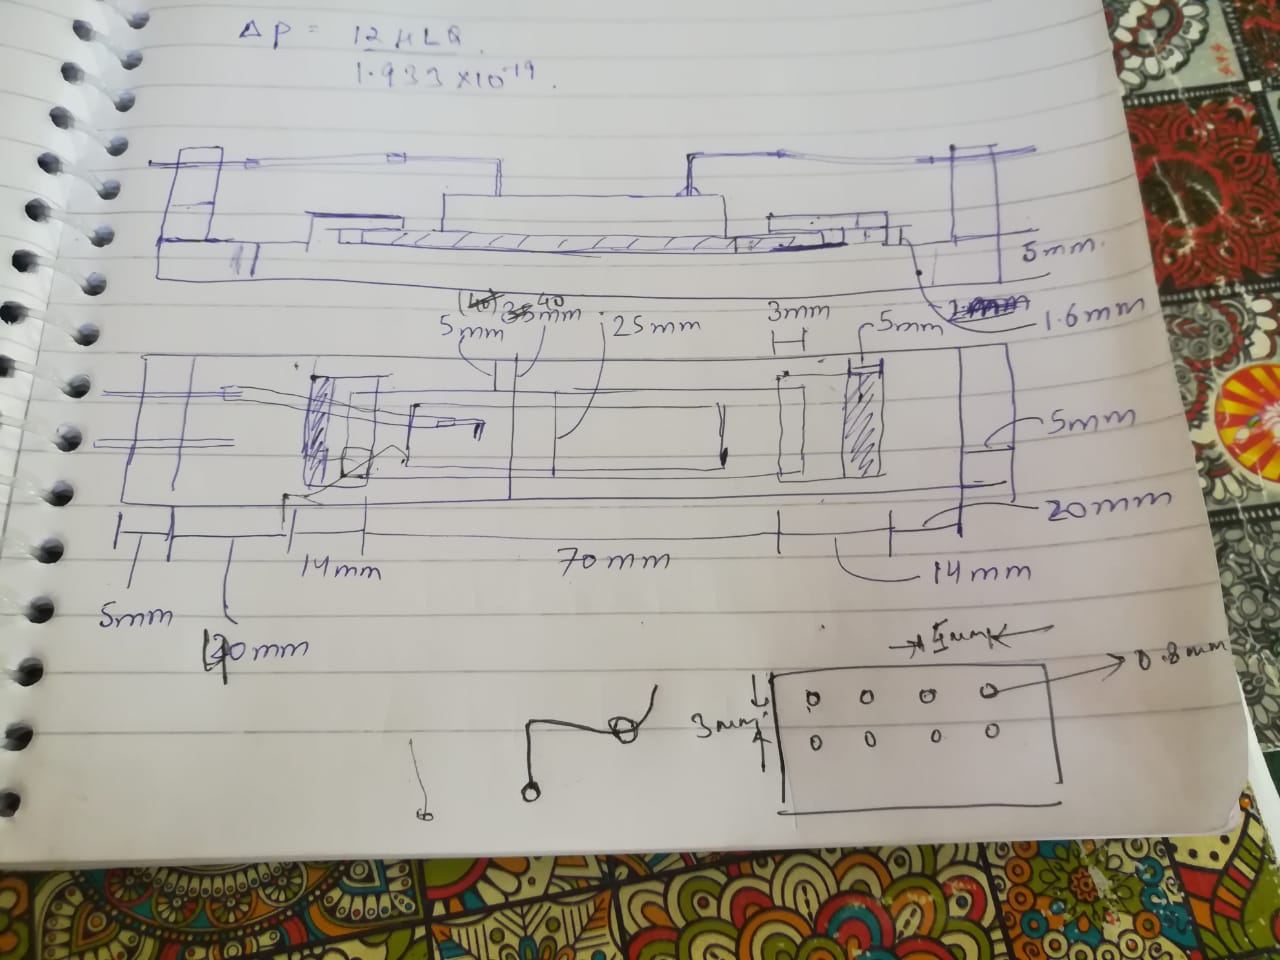 ΔP = 12 μLQ
1.933 × 10⁻¹⁹.
5mm.
(40) 40
5mm 35mm 25mm 3mm 5mm 1.6mm
5mm
20mm
14mm 70mm 14mm
5mm
20mm
5mm 0.8mm
3mm